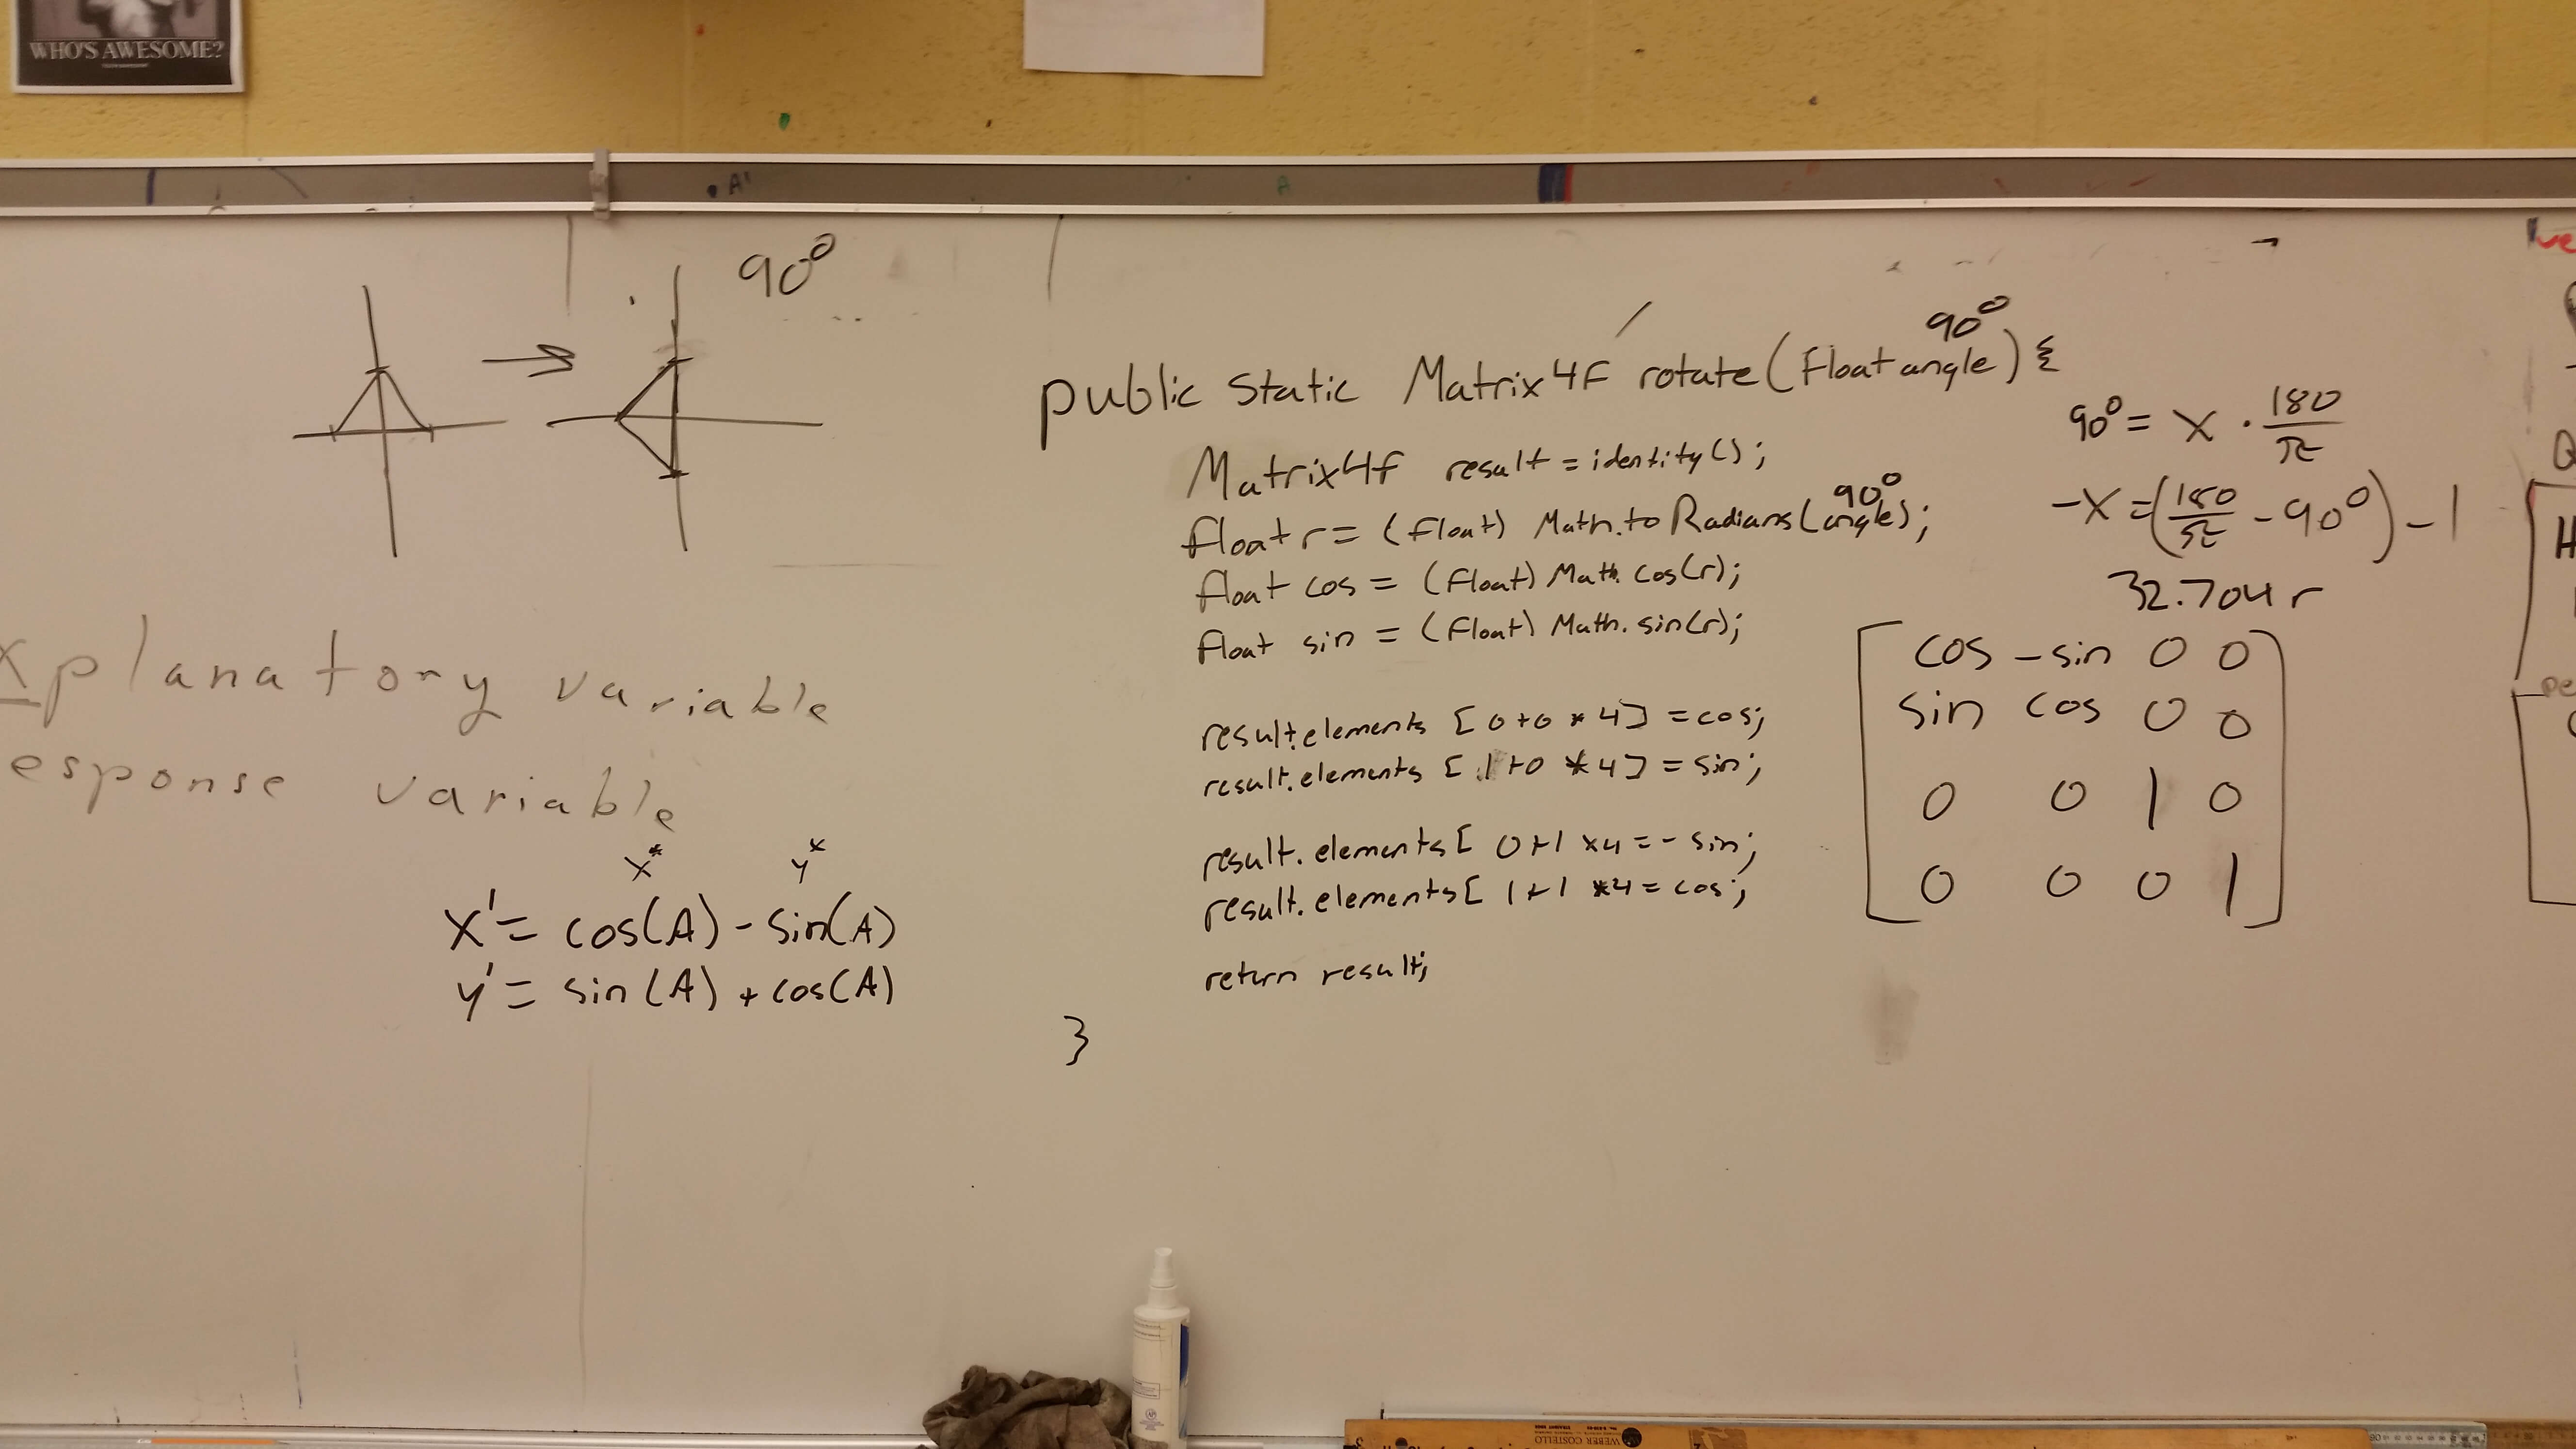 WHO'S AWESOME?
A'
A
90°
xplanatory variable
esponse variable
x* y*
x' = cos(A) - sin(A)
y' = sin(A) + cos(A)
90°
public static Matrix4F rotate(Float angle) {
Matrix4f result = identity();
90°
float r = (float) Math.toRadians(angle);
float cos = (float) Math.cos(r);
float sin = (float) Math.sin(r);
result.elements [0+0 * 4] = cos;
result.elements [1+0 * 4] = sin;
result.elements [ 0+1 *4 = - sin;
result.elements [ 1+1 *4 = cos;
return result;
}
90° = x · 180/π
-x = (180/π - 90°) - 1
32.704 r
cos -sin 0 0
sin cos 0 0
0 0 1 0
0 0 0 1
WEBER COSTELLO